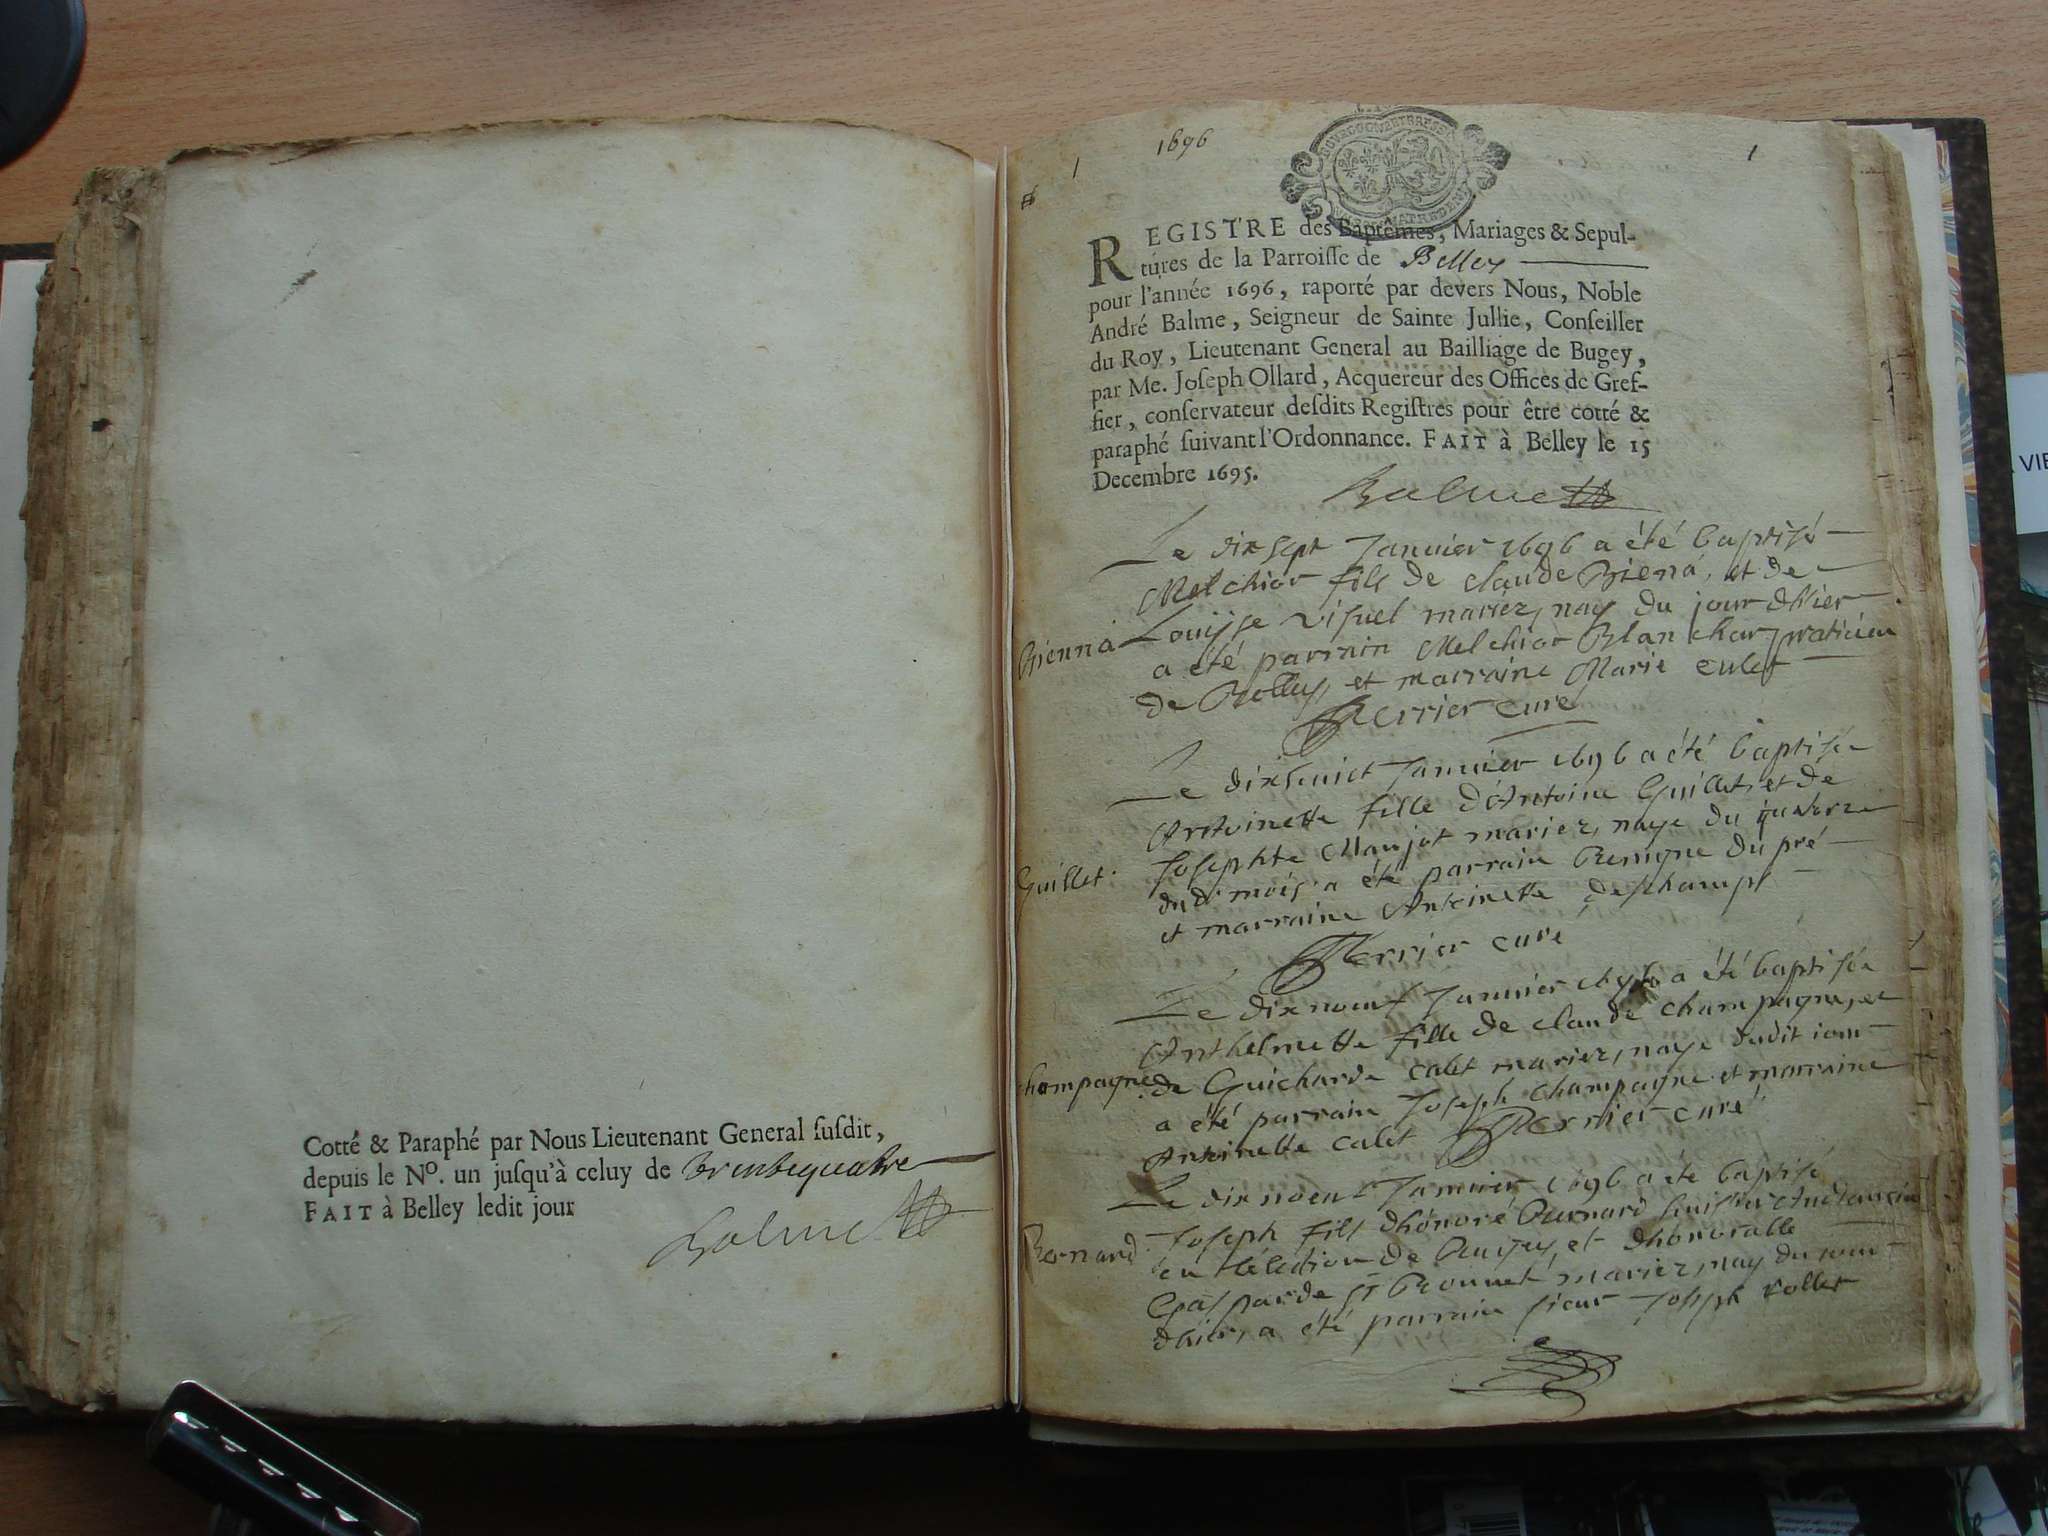 Cotté & Paraphé par Nous Lieutenant General suſdit,
depuis le No. un juſqu'à celuy de trentequatre
FAIT à Belley ledit jour
Balme
1696
1
1
REGISTRE des Baptêmes, Mariages & Sepul-
tures de la Parroiſſe de Belley
pour l'année 1696, raporté par devers Nous, Noble
André Balme, Seigneur de Sainte Jullie, Conſeiller
du Roy, Lieutenant General au Bailliage de Bugey,
par Me. Joſeph Ollard, Acquereur des Offices de Gref-
fier, conſervateur deſdits Regiſtres pour être cotté &
paraphé ſuivant l'Ordonnance. FAIT à Belley le 15
Decembre 1695.
Balme
Le dix sept Januier 1696 a été baptisé
Melchior fils de claude Biena, et de
Bienna
Louyse visuel mariez, nay du jour dhier
a été parrain Melchior Blanchar praticien
de Belley, et marraine Marie culet
Perrier curé
Le dixhuict Januier 1696 a été baptisée
Antoinette fille d'Antoine Guillet, et de
Guillet
Josephte Maujot mariez, naye du quatorze
dud. mois a été parrain Benigne du pré
et marraine Antoinette deschamps
Perrier curé
Le dix noeuf Januier 1696 a été baptisée
Anthelmette fille de claude champagne, et
champagne
de Guicharde calet mariez, naye dudit jour
a été parrain Joseph champagne et marraine
Antoinette calet Perrier curé
Le dix noeuf Januier 1696 a été baptisé
Joseph fils dhonoré Bernard huissier Audiancier
Bernard
en lélection de Bugey, et dhonorable
Gasparde st Bonnet mariez, nay du jour
dhier, a été parrain sieur Joseph rollet